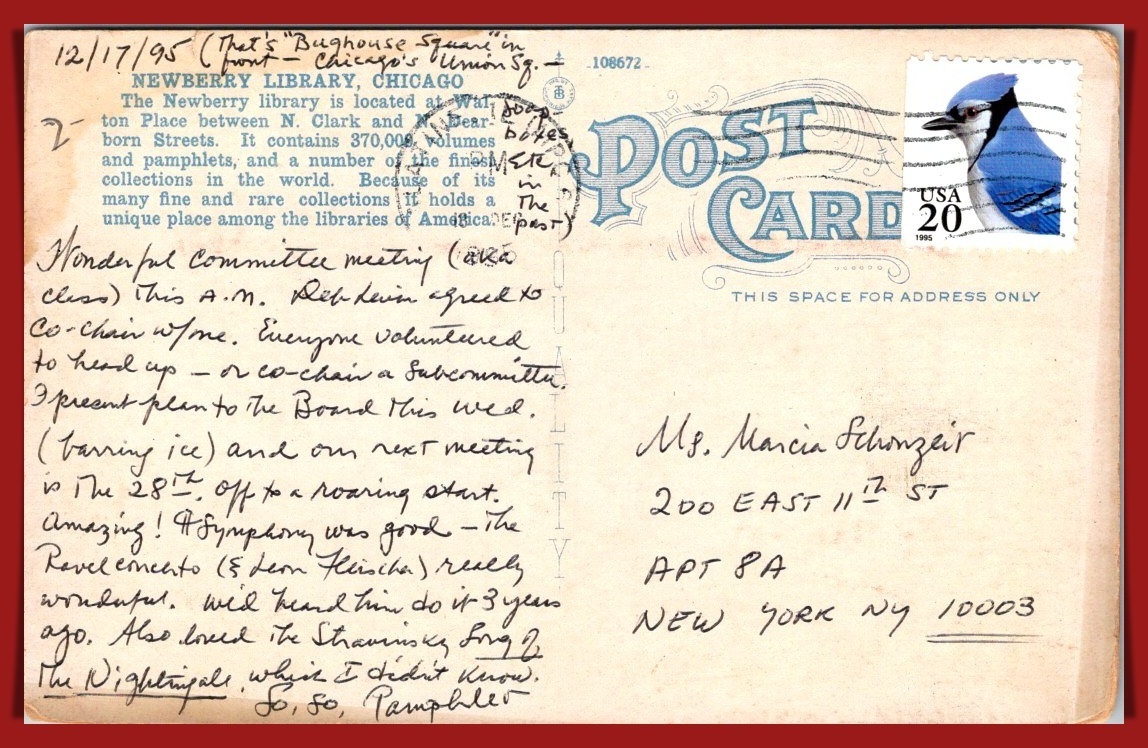 12/17/95 (That's "Bughouse Square" in
front — Chicago's Union Sq. —
soap
boxes
etc
in
the
past)
NEWBERRY LIBRARY, CHICAGO
The Newberry library is located at Wal-
ton Place between N. Clark and N. Dear-
born Streets. It contains 370,000 volumes
and pamphlets, and a number of the finest
collections in the world. Because of its
many fine and rare collections it holds a
unique place among the libraries of America.
2-
Wonderful committee meeting (aka
class) this A.M. agreed to
co-chair w/me. Everyone volunteered
to head up — or co-chair a subcommittee.
I present plan to the Board this Wed.
(barring ice) and our next meeting
is the 28th. Off to a roaring start.
Amazing! Symphony was good — the
Ravel concerto (& Leon Fleischer) really
wonderful. We'd heard him do it 3 years
ago. Also loved the Stravinsky Song of
the Nightingale, which I didn't know.
So, so, Pamphlet
QUALITY
108672
POST
CARD
USA
20
1995
THIS SPACE FOR ADDRESS ONLY
Ms. Marcia Schonzeit
200 EAST 11TH ST
APT 8A
NEW YORK NY 10003